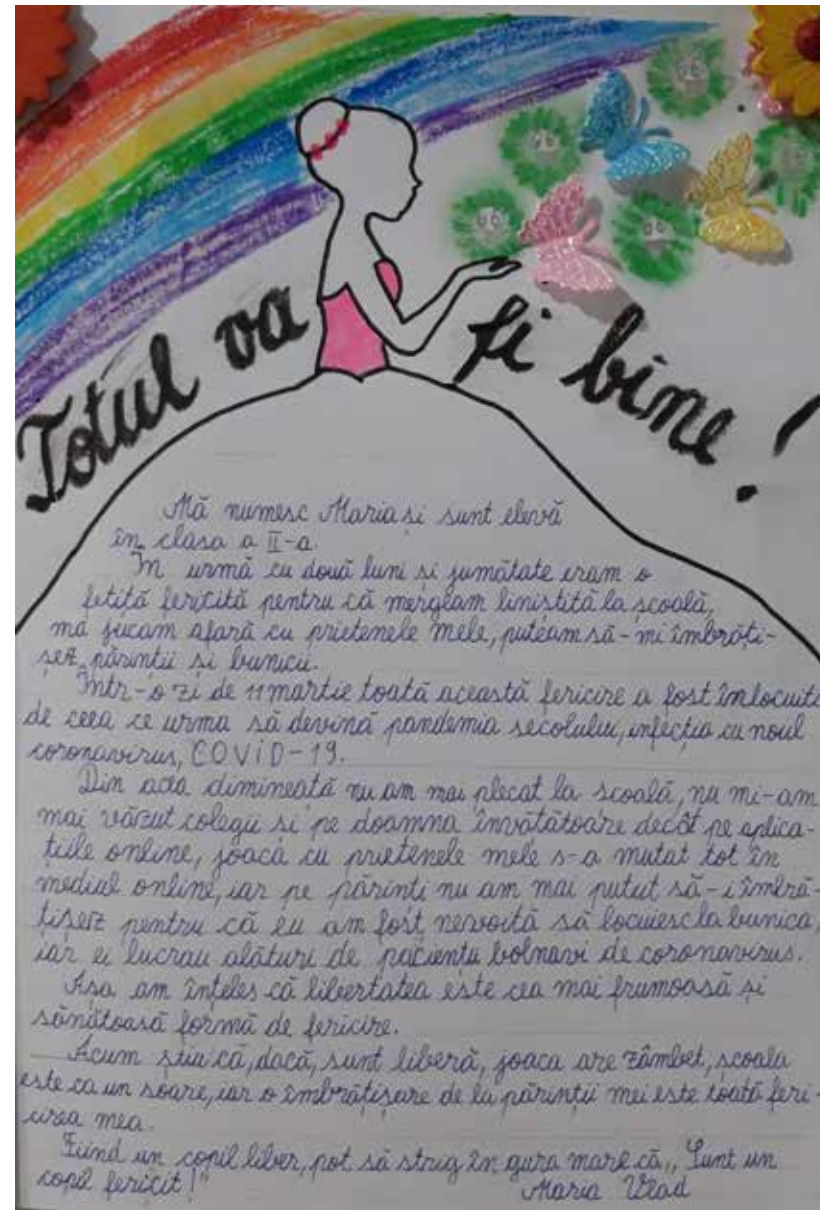 Totul va fi bine!
Mă numesc Maria și sunt elevă
în clasa a II-a.
În urmă cu două luni și jumătate eram o
fetiță fericită pentru că mergeam liniștită la școală,
mă jucam afară cu prietenele mele, puteam să-mi îmbrăți-
șez, părinții și bunicii.
Într-o zi de 11 martie toată această fericire a fost înlocuită
de ceea ce urma să devină pandemia secolului, infecția cu noul
coronavirus, COViD-19.
Din acea dimineață nu am mai plecat la școală, nu mi-am
mai văzut colegii și pe doamna învățătoare decât pe aplica-
țiile online, joaca cu prietenele mele s-a mutat tot în
mediul online, iar pe părinți nu am mai putut să-i îmbră-
țișez pentru că eu am fost nevoită să locuiesc la bunica,
iar ei lucrau alături de pacienții bolnavi de coronavirus.
Așa am înțeles că libertatea este cea mai frumoasă și
sănătoasă formă de fericire.
Acum știu că, dacă, sunt liberă, joaca are zâmbet, școala
este ca un soare, iar o îmbrățișare de la părinții mei este toată feri-
cirea mea.
Fiind un copil liber, pot să strig în gura mare că „Sunt un
copil fericit!"
Maria Vlad